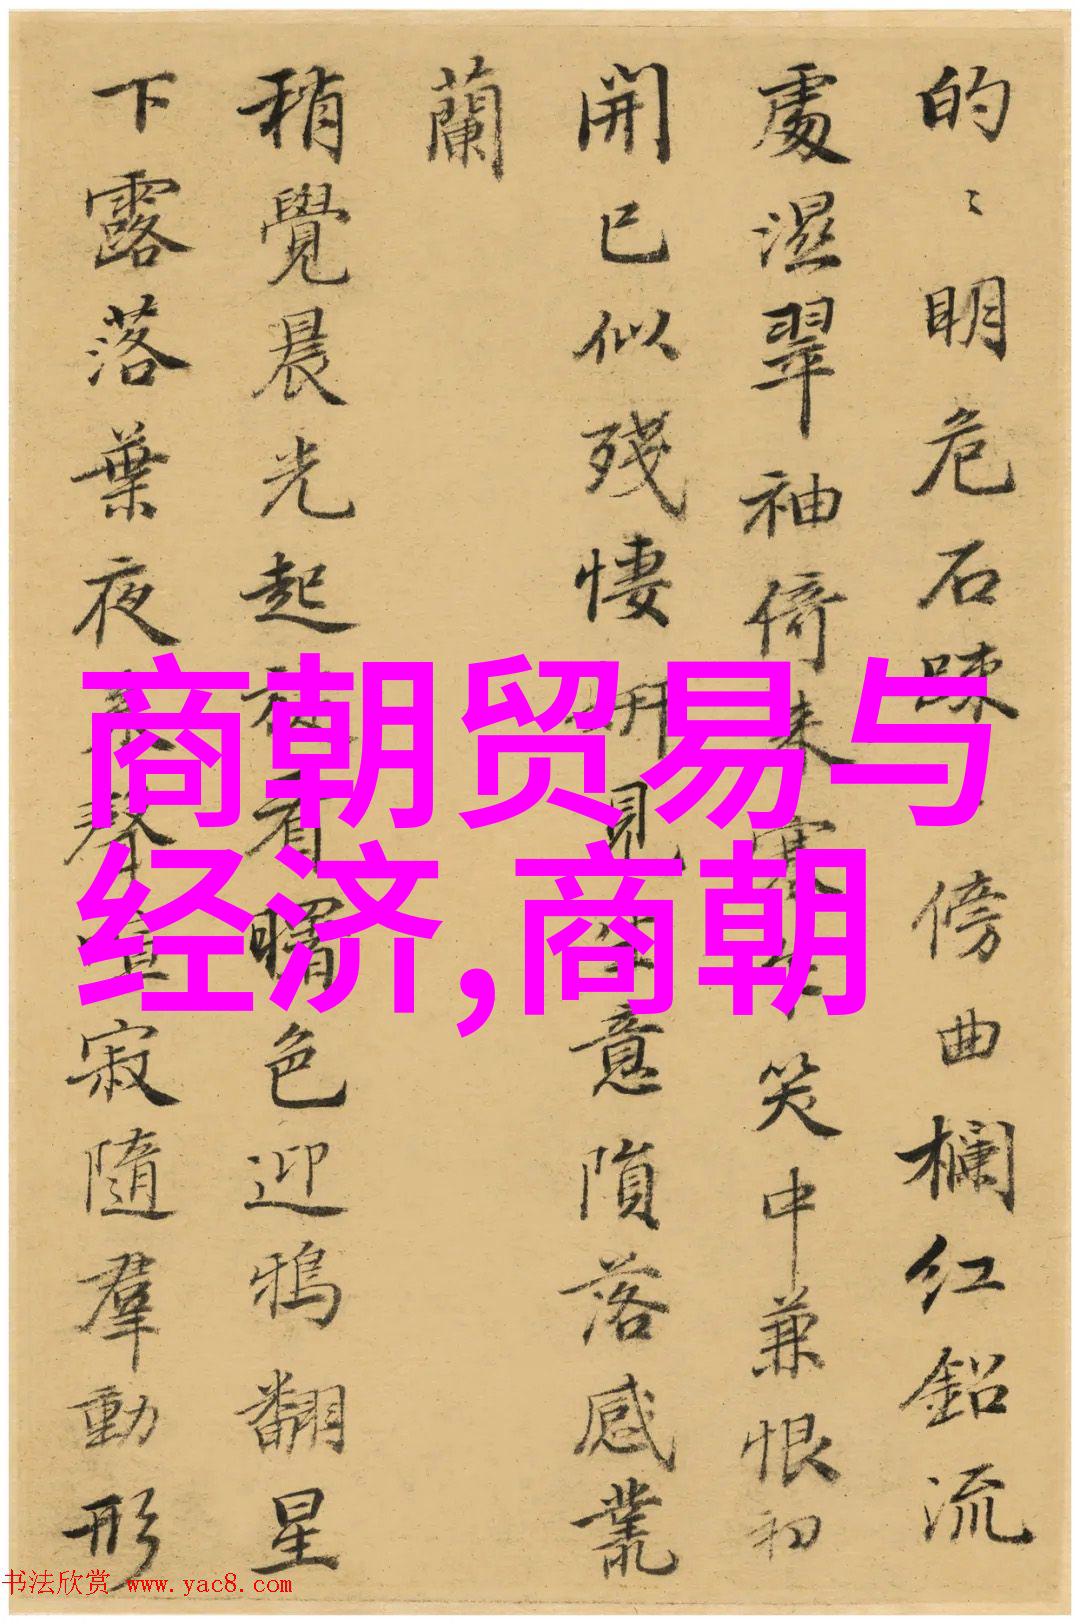 的〻明危石踈 傍曲欄红鉛流
處濕翠袖倚朱寒 笑中兼恨初
開已似残悽 見 意隕落感叢
蘭
稍覺晨光起 看曙色迎鴉翻星
下露落葉夜 聲 寂隨羣動形
商朝贸易与
经济,商朝
书法欣赏 www.yac8.com